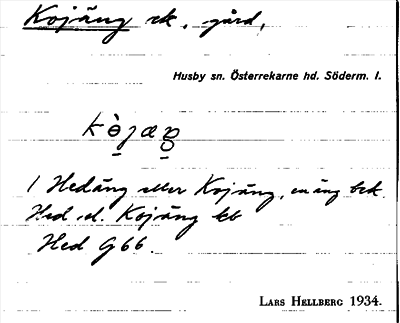 Kojäng ek, gård,
Husby sn. Österrekarne hd. Söderm. l.
1 Hedäng eller Kojäng, en äng bek.
Hed el. Kojäng bb
Hed G 66.
LARS HELLBERG 1934.